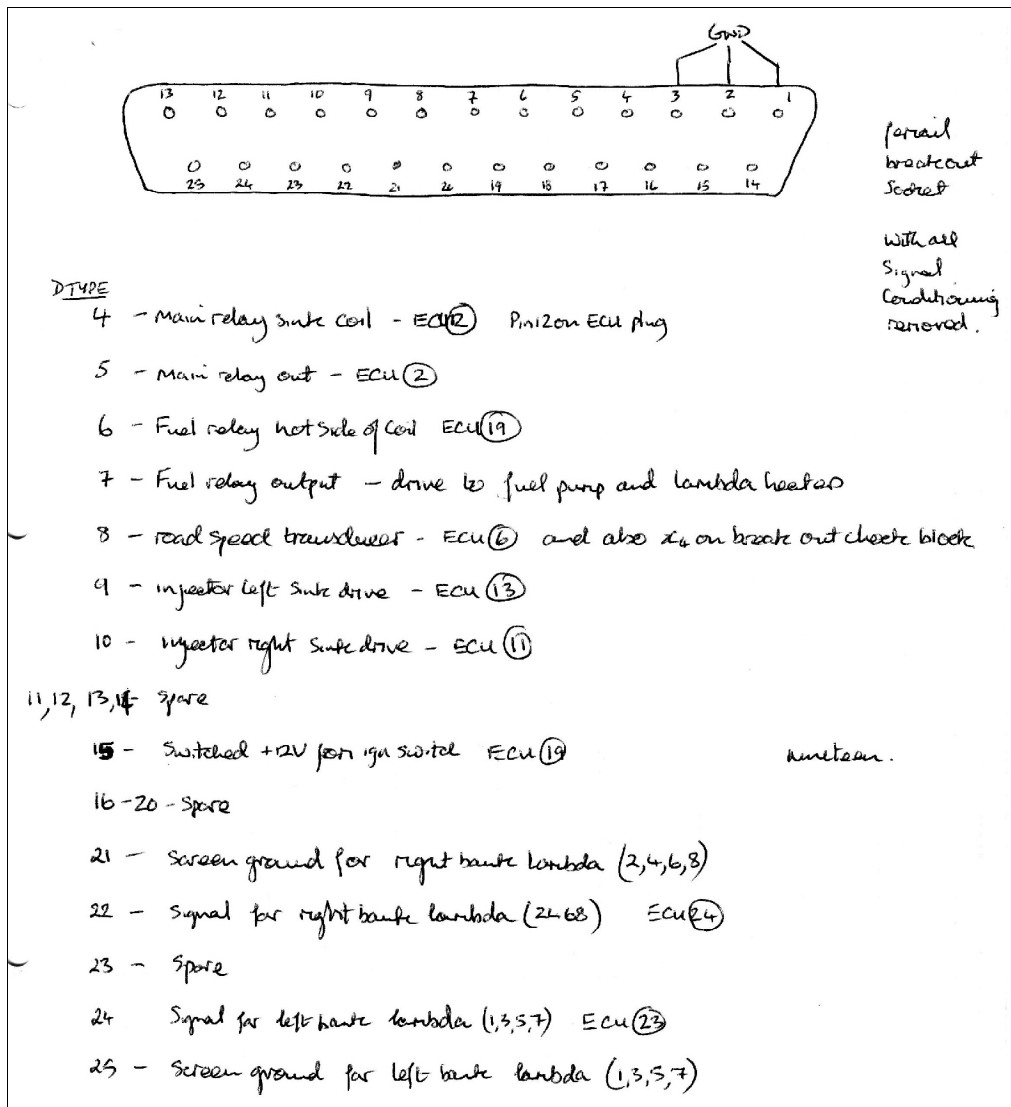 GND
13 12 11 10 9 8 7 6 5 4 3 2 1
25 24 23 22 21 20 19 18 17 16 15 14
breakout
Socket
with all
Signal
Conditioning
removed.
DTYPE
4 - Main relay sink coil - ECU 12 Pin 12 on ECU plug
5 - Main relay out - ECU 2
6 - Fuel relay hot side of coil ECU 19
7 - Fuel relay output - drive to fuel pump and lambda heaters
8 - road speed transducer - ECU 6 and also x4 on break out check block
9 - injector left sink drive - ECU 13
10 - injector right sink drive - ECU 11
11, 12, 13, 14 - Spare
15 - Switched +12V from ign switch ECU 19 nineteen.
16-20 - Spare
21 - Screen ground for right bank lambda (2,4,6,8)
22 - Signal for right bank lambda (2468) ECU 24
23 - Spare
24 Signal for left bank lambda (1,3,5,7) ECU 23
25 - Screen ground for left bank lambda (1,3,5,7)